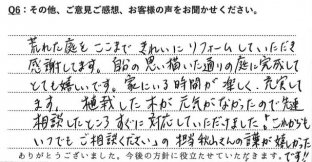 Q6：その他、ご意見ご感想、お客様の声をお聞かせください。
荒れた庭をここまできれいにリフォームしていただき
感謝してます。自分の思い描いた通りの庭に完成して
とても嬉しいです。家にいる時間が楽しく、充実して
ます。植栽した木が元気がなかったので先達
相談したところすぐに対応していただけました！これからも
いつでもご相談ください」の担当秋山さんの言葉が嬉しかった
ありがとうございました。今後の方針に役立たせていただきます。です!!